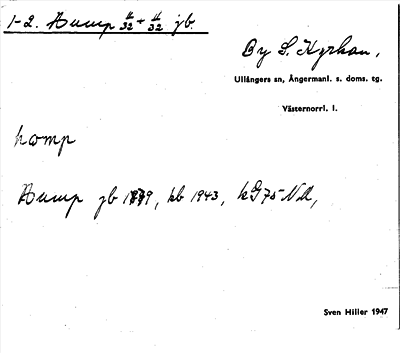 1-2. Hump 11/32 + 11/32 jb.
By S. Kyrkan,
Ullångers sn, Ångermanl. s. doms. tg.
Västernorrl. l.
homp
Hump jb 1879, kb 1943, kG 75 NV,
Sven Hiller 1947